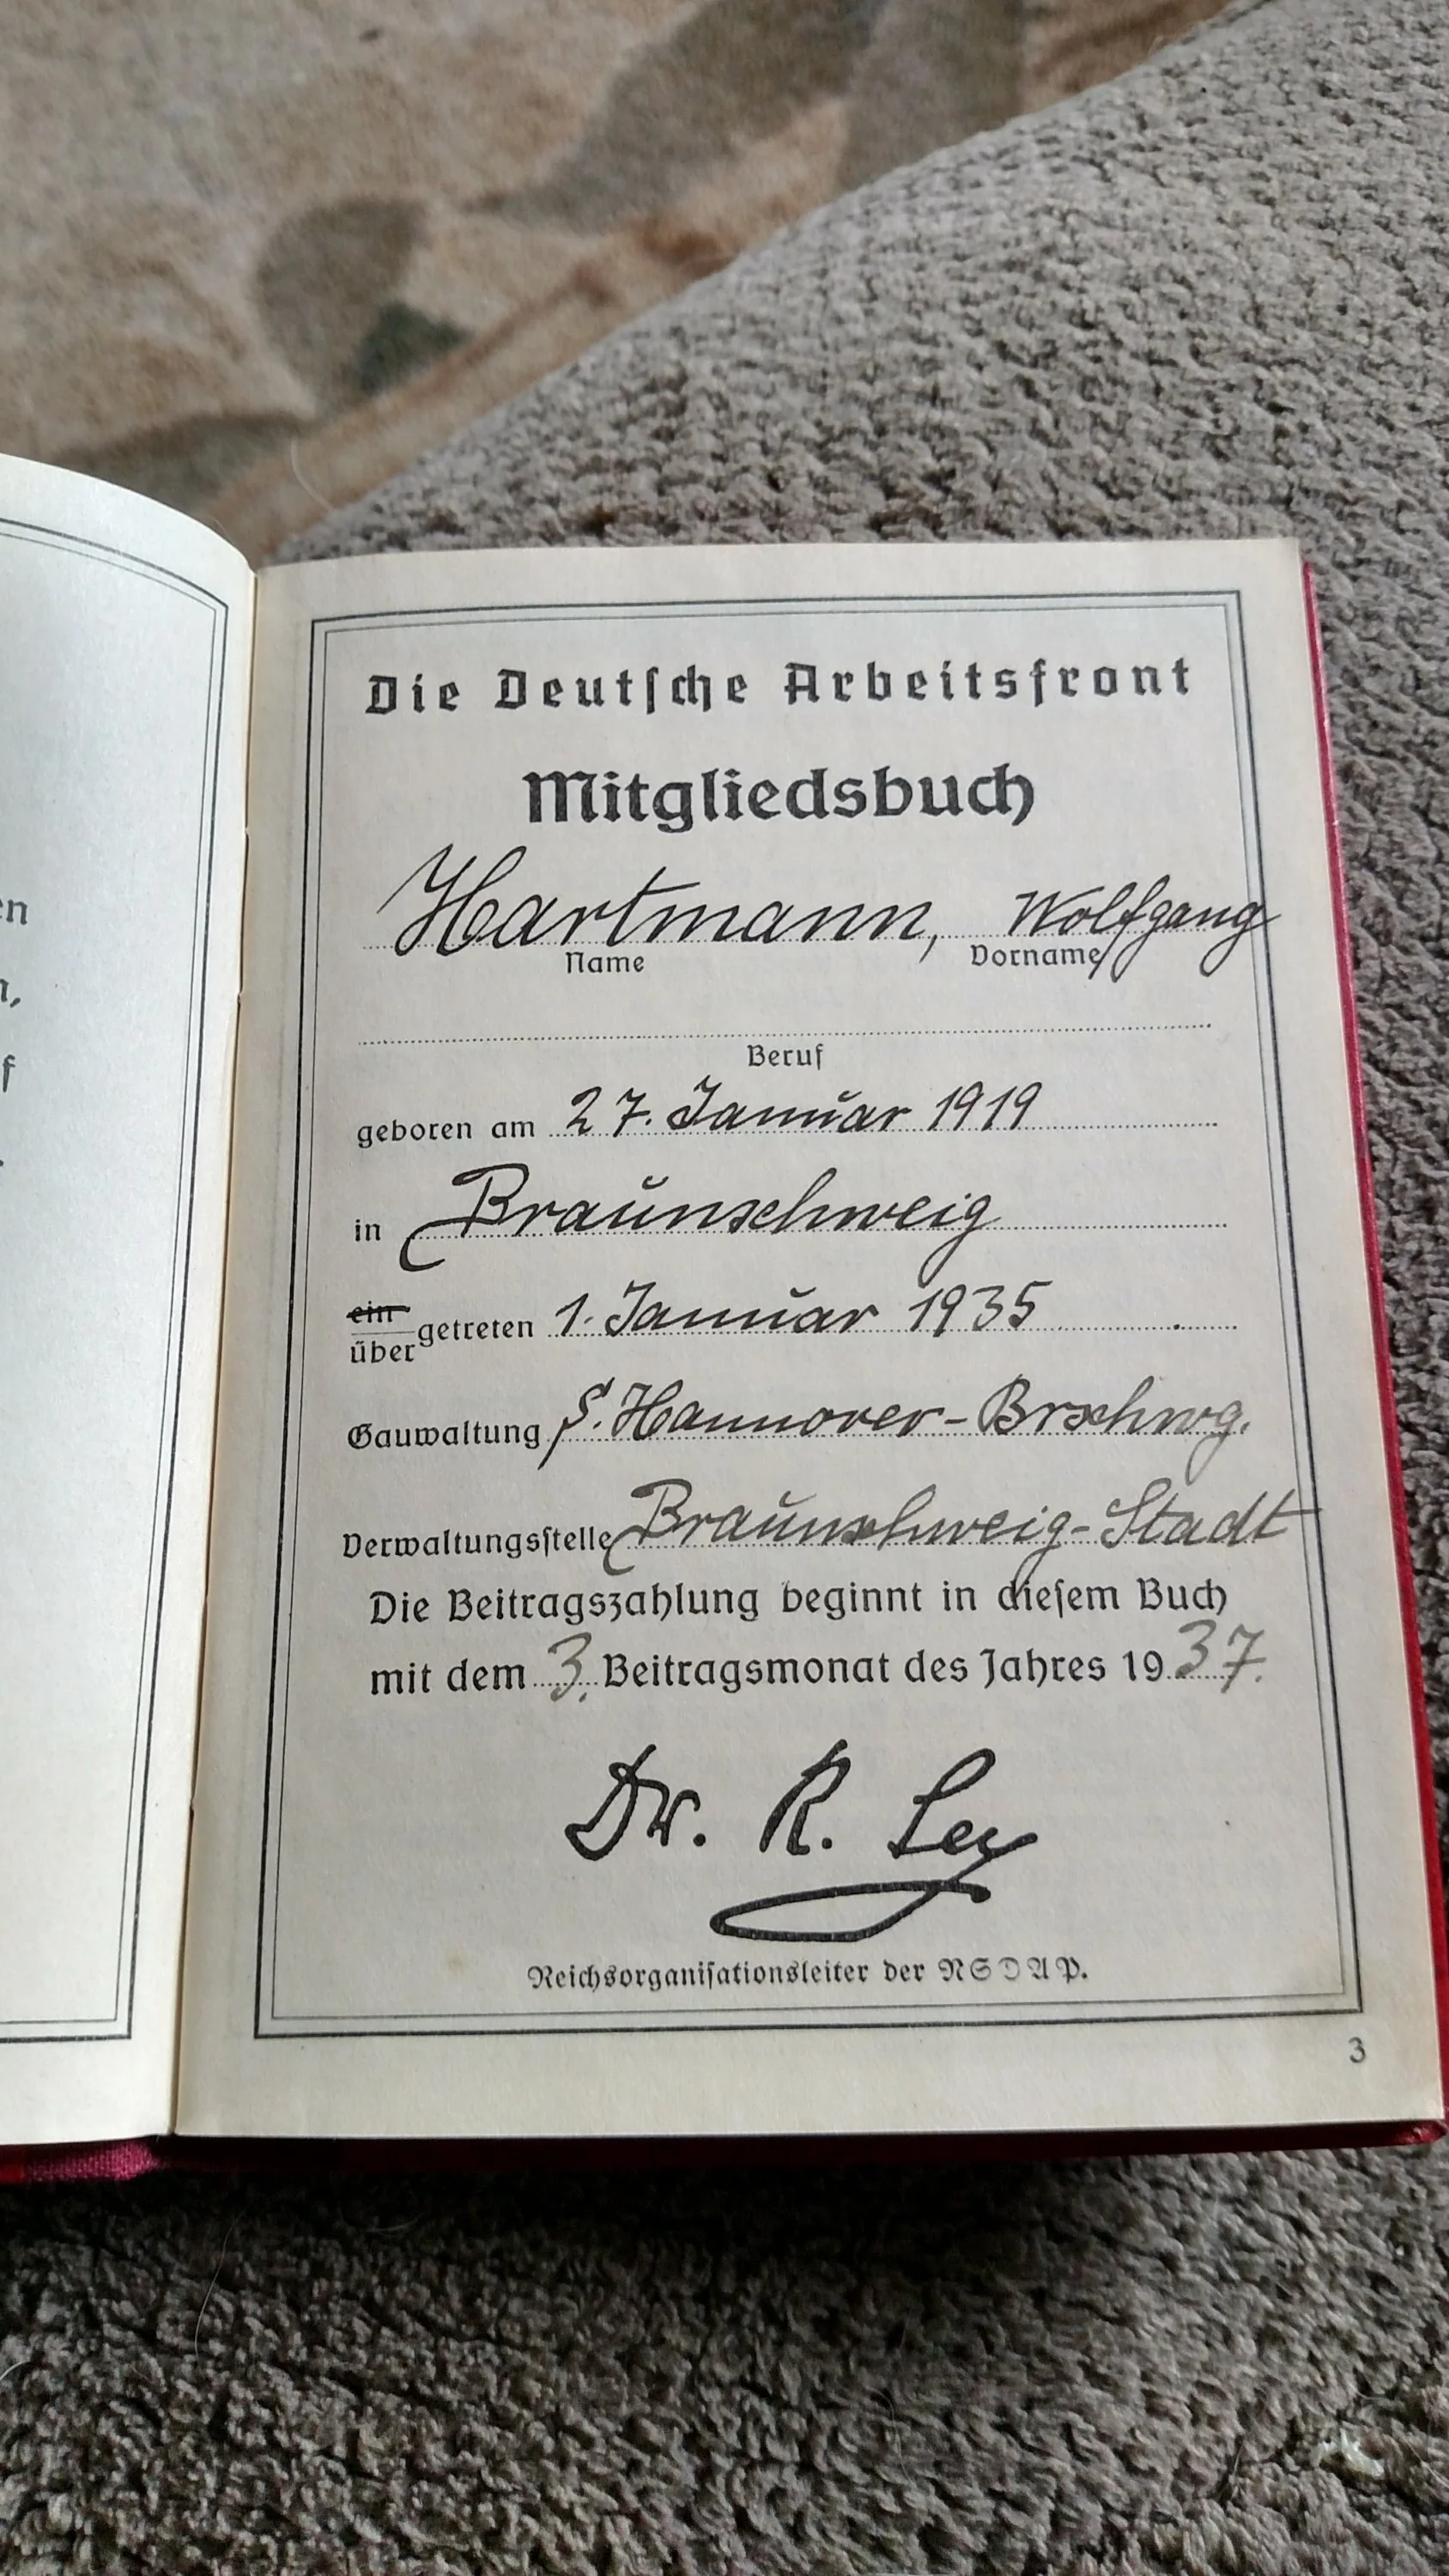 en
n,
f
Die Deutſche Arbeitsfront
Mitgliedsbuch
Hartmann, Wolfgang
Name Vorname
Beruf
geboren am 27. Januar 1919
in Braunschweig
ein
getreten 1. Januar 1935
über
Gauwaltung S. Hannover-Brschwg.
Verwaltungsſtelle Braunschweig-Stadt
Die Beitragszahlung beginnt in dieſem Buch
mit dem 3. Beitragsmonat des Jahres 1937.
Dr. R. Ley
Reichsorganiſationsleiter der NSDAP.
3